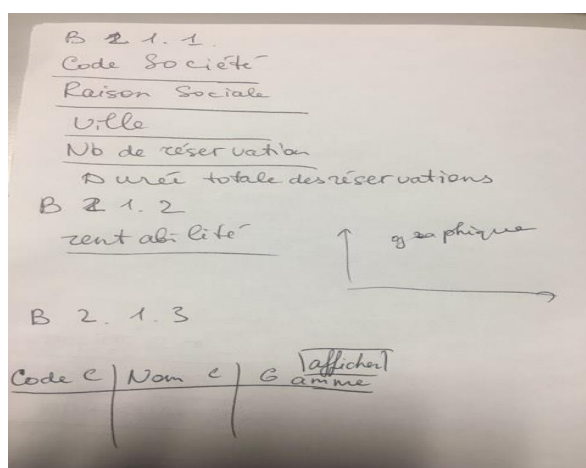 B 2 1.1.
Code Société
Raison Sociale
Ville
Nb de réservation
Durée totale des réservations
B 2 1.2
rentabilité
graphique
B 2.1.3
afficher
Code C | Nom C | Gamme